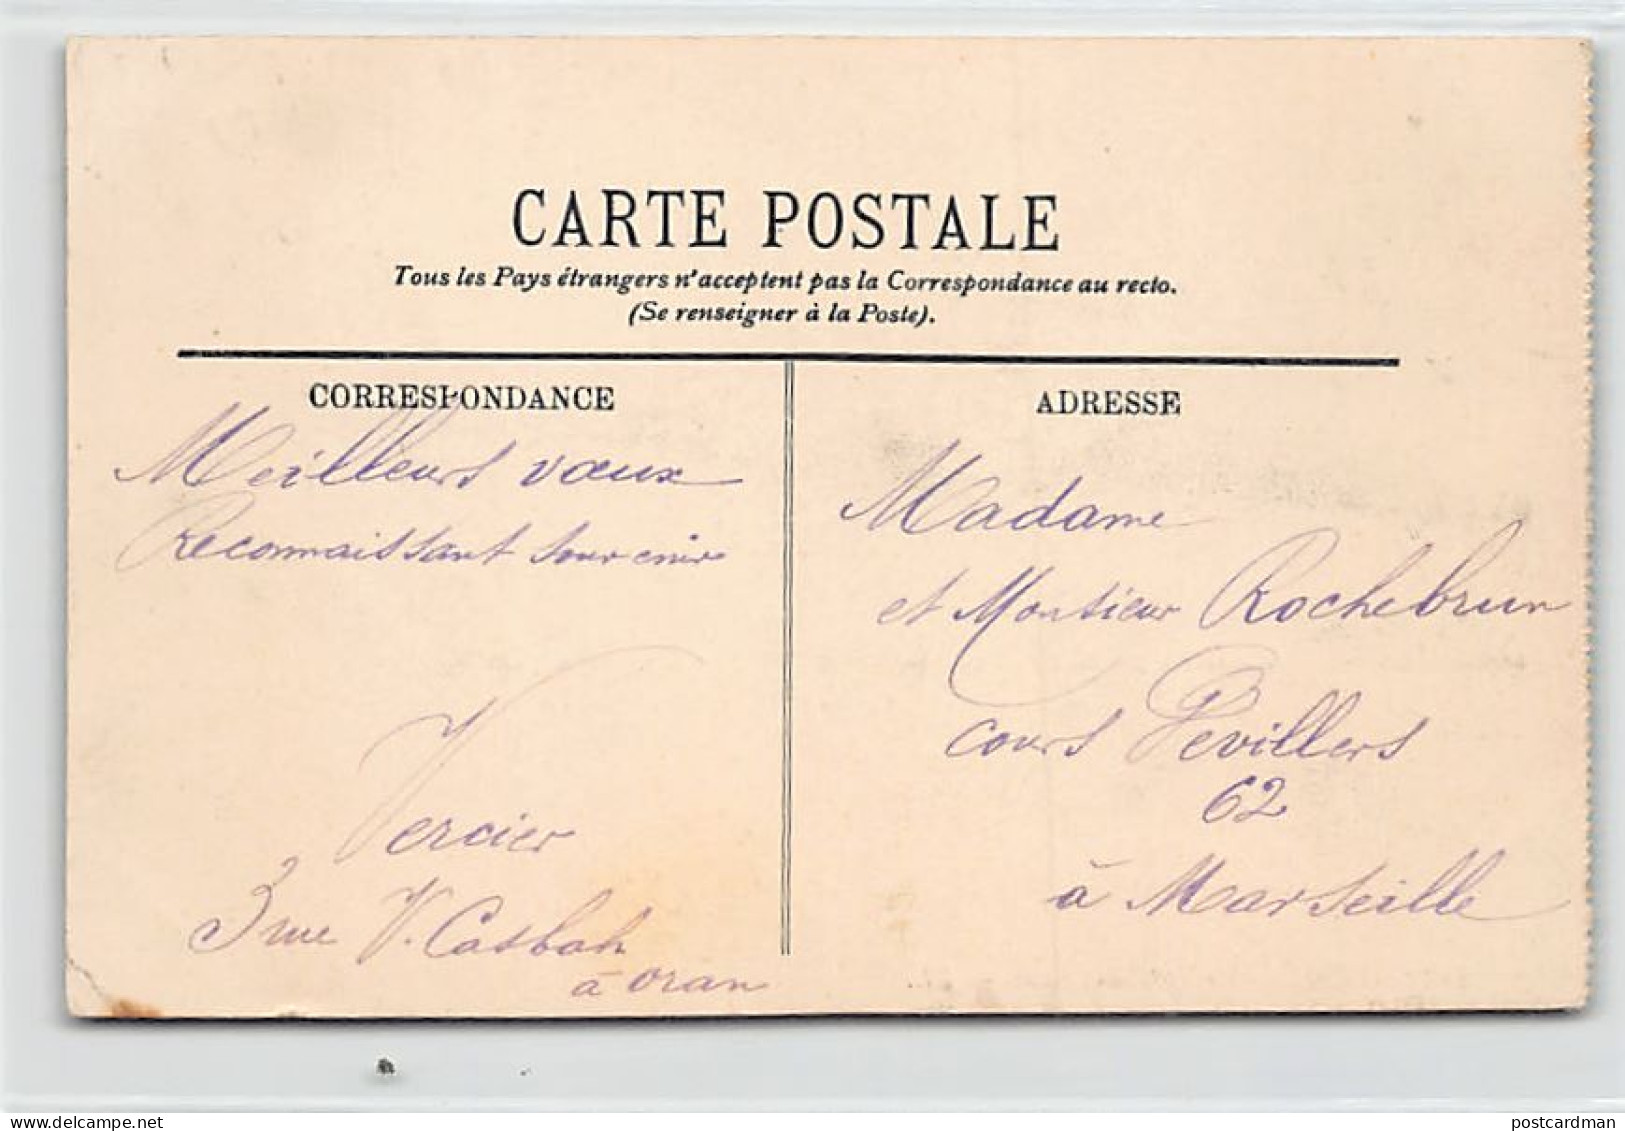 CARTE POSTALE
Tous les Pays étrangers n'acceptent pas la Correspondance au recto.
(Se renseigner à la Poste).
CORRESPONDANCE
Meilleurs vœux
Reconnaissant souvenir
Vercier
3 rue V. Casbah
à Oran
ADRESSE
Madame
et Monsieur Rochebrun
cours Devilliers
62
à Marseille
delcampe.net
postcardman